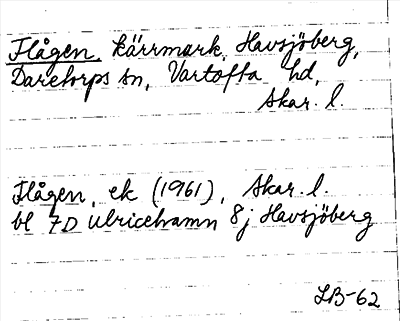 Flågen, kärrmark, Havsjöberg,
Daretorps sn, Vartofta hd,
Skar. l.
Flågen, ek (1961), Skar. l.
bl 7D Ulricehamn 8j Havsjöberg
LB-62